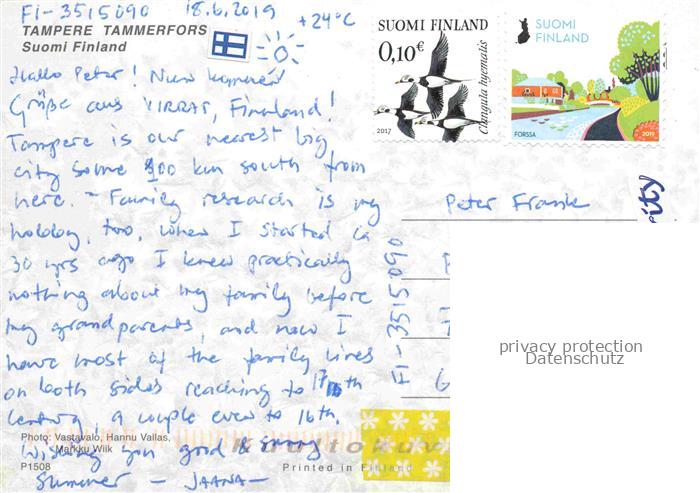 FI-3515090 18.6.2019 +24°C
TAMPERE TAMMERFORS
Suomi Finland
Hallo Peter! Nun kommen
Grüße aus VIRRAT, Finnland!
Tampere is our nearest big
city some 100 km south from
here. - Family research is my
hobby, too, when I started ca
30 yrs ago I knew practically
nothing about my family before
my grandparents, and now I
have most of the family lines
on both sides reaching to 17th
century, a couple even to 16th.
Wishing you good & sunny
Summer - JAANA -
Photo: Vastavalo, Hannu Vallas,
Markku Wiik
P1508
Printed in Finland
SUOMI FINLAND
0,10€
Clangula hyemalis
2017
SUOMI
FINLAND
FORSSA
2019
Peter Frank
FI-3515090
privacy protection
Datenschutz